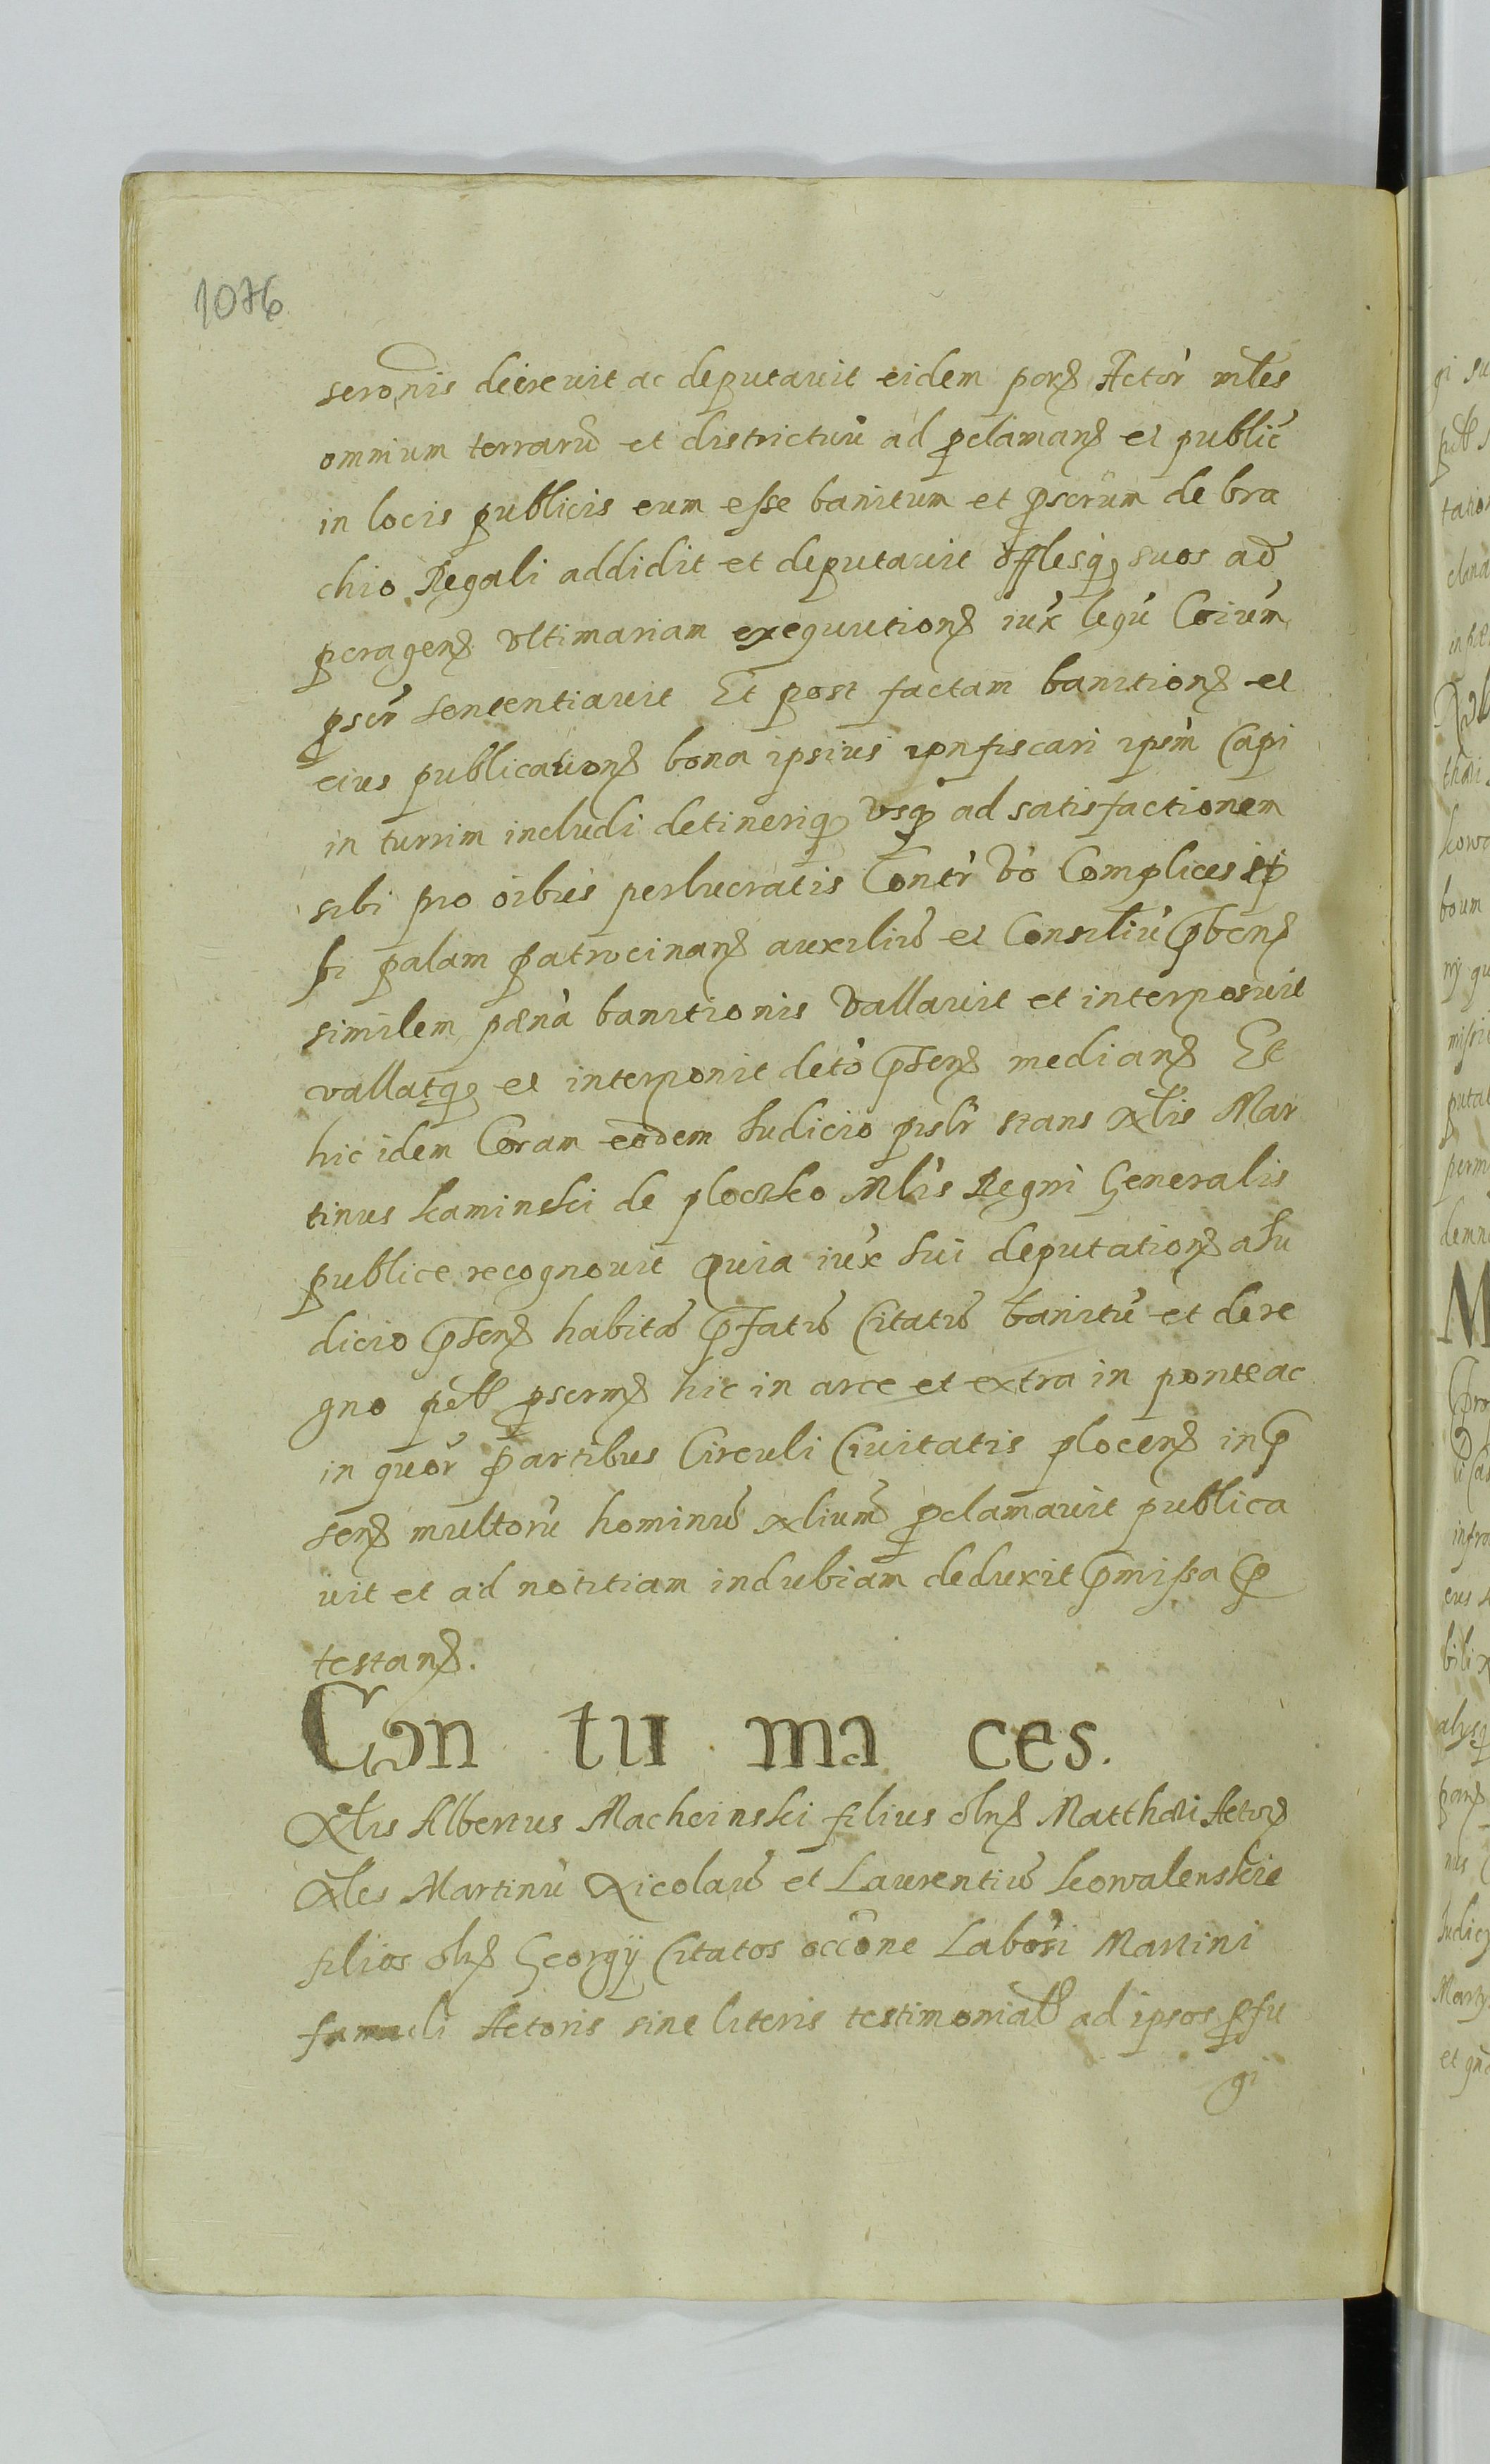 1076
seronis decrevit ac deputavit eidem parȝ Actor mtles
omnium terraru et districtuu ad pclamanȝ et public
in locis publicis eum esse banitum et pscrum de bra
chio Regali addidit et deputavit offlesq suos ad
peragenȝ Vltimariam exequutionȝ iux legu Coium
pscr sententiavit Et post factam banitionȝ et
eius publicationȝ bona ipsius confiscari ipsm Capi
in turrim includi detineriq Vsq ad satisfactionem
sibi pro oibus perlucratis Contr Vo Complices
palam patrocinanȝ auxiliu et Consiliu pbenȝ
similem pæna banitionis Vallavit et interposuit
vallatq et interponit deto psenȝ medianȝ Et
hic idem Coram eodem Iudicio psr stans Nlis Mar
tinus Kaminski de plocsko Mlis Regni Generalis
publice recognovit Quia iux sui deputationȝ a Iu
dicio psenȝ habita pfatu Citatu banitu et de re
gno ppscrmȝ hic in arce et extra in ponte ac
in quor partibus Circuli Civitatis plocenȝ in p
senȝ multoru hominu Nliumo pclamavit publica
vit et ad notitiam indubiam deduxit pmissa p
testanȝ.
Con tu ma ces.
Nlis Albertus Macheinski filius olnȝ Matthæi Actorȝ
Nles Martinu Nicolau et Laurentiu Kowalenskie
filios olnȝ Georgij Citatos occone Labosi Martini
famuli Actoris sine literis testimonial ad ipsos pfu
gi